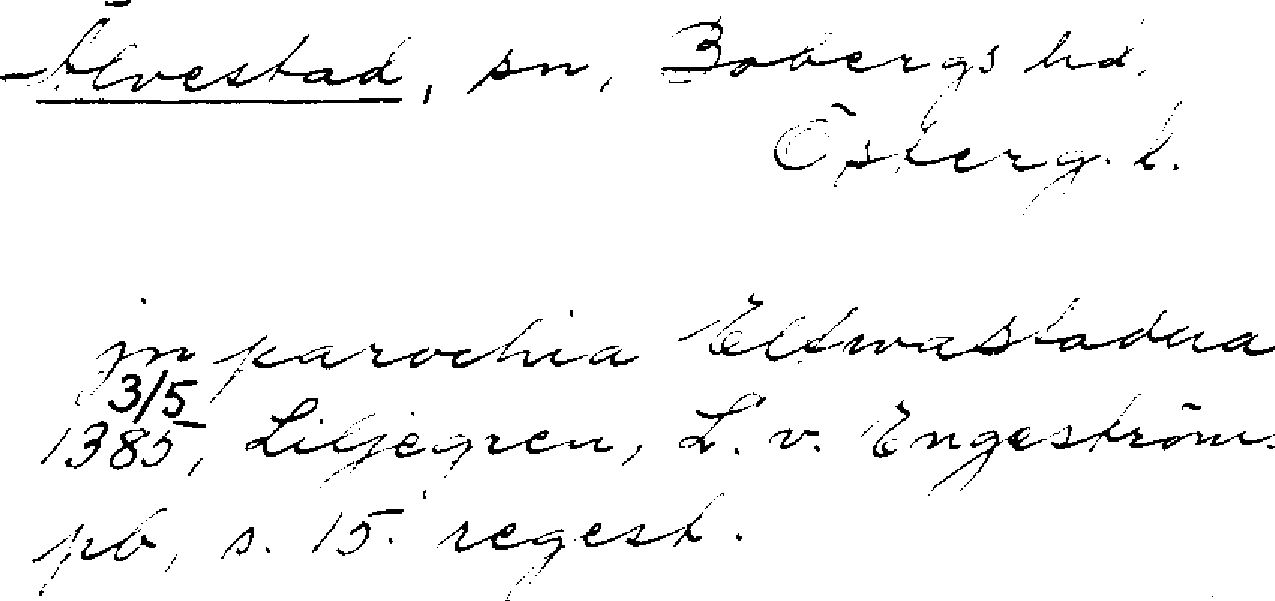 Älvestad, sn, Bobergs hd,
Österg. l.
jn parochia Elswastadha
3/5
1385, Liljegren, L. v. Engeström:
pb, s. 15. regest.